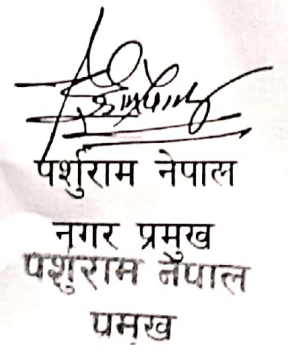 पर्शुराम नेपाल
नगर प्रमुख
पशुराम नेपाल
प्रमुख